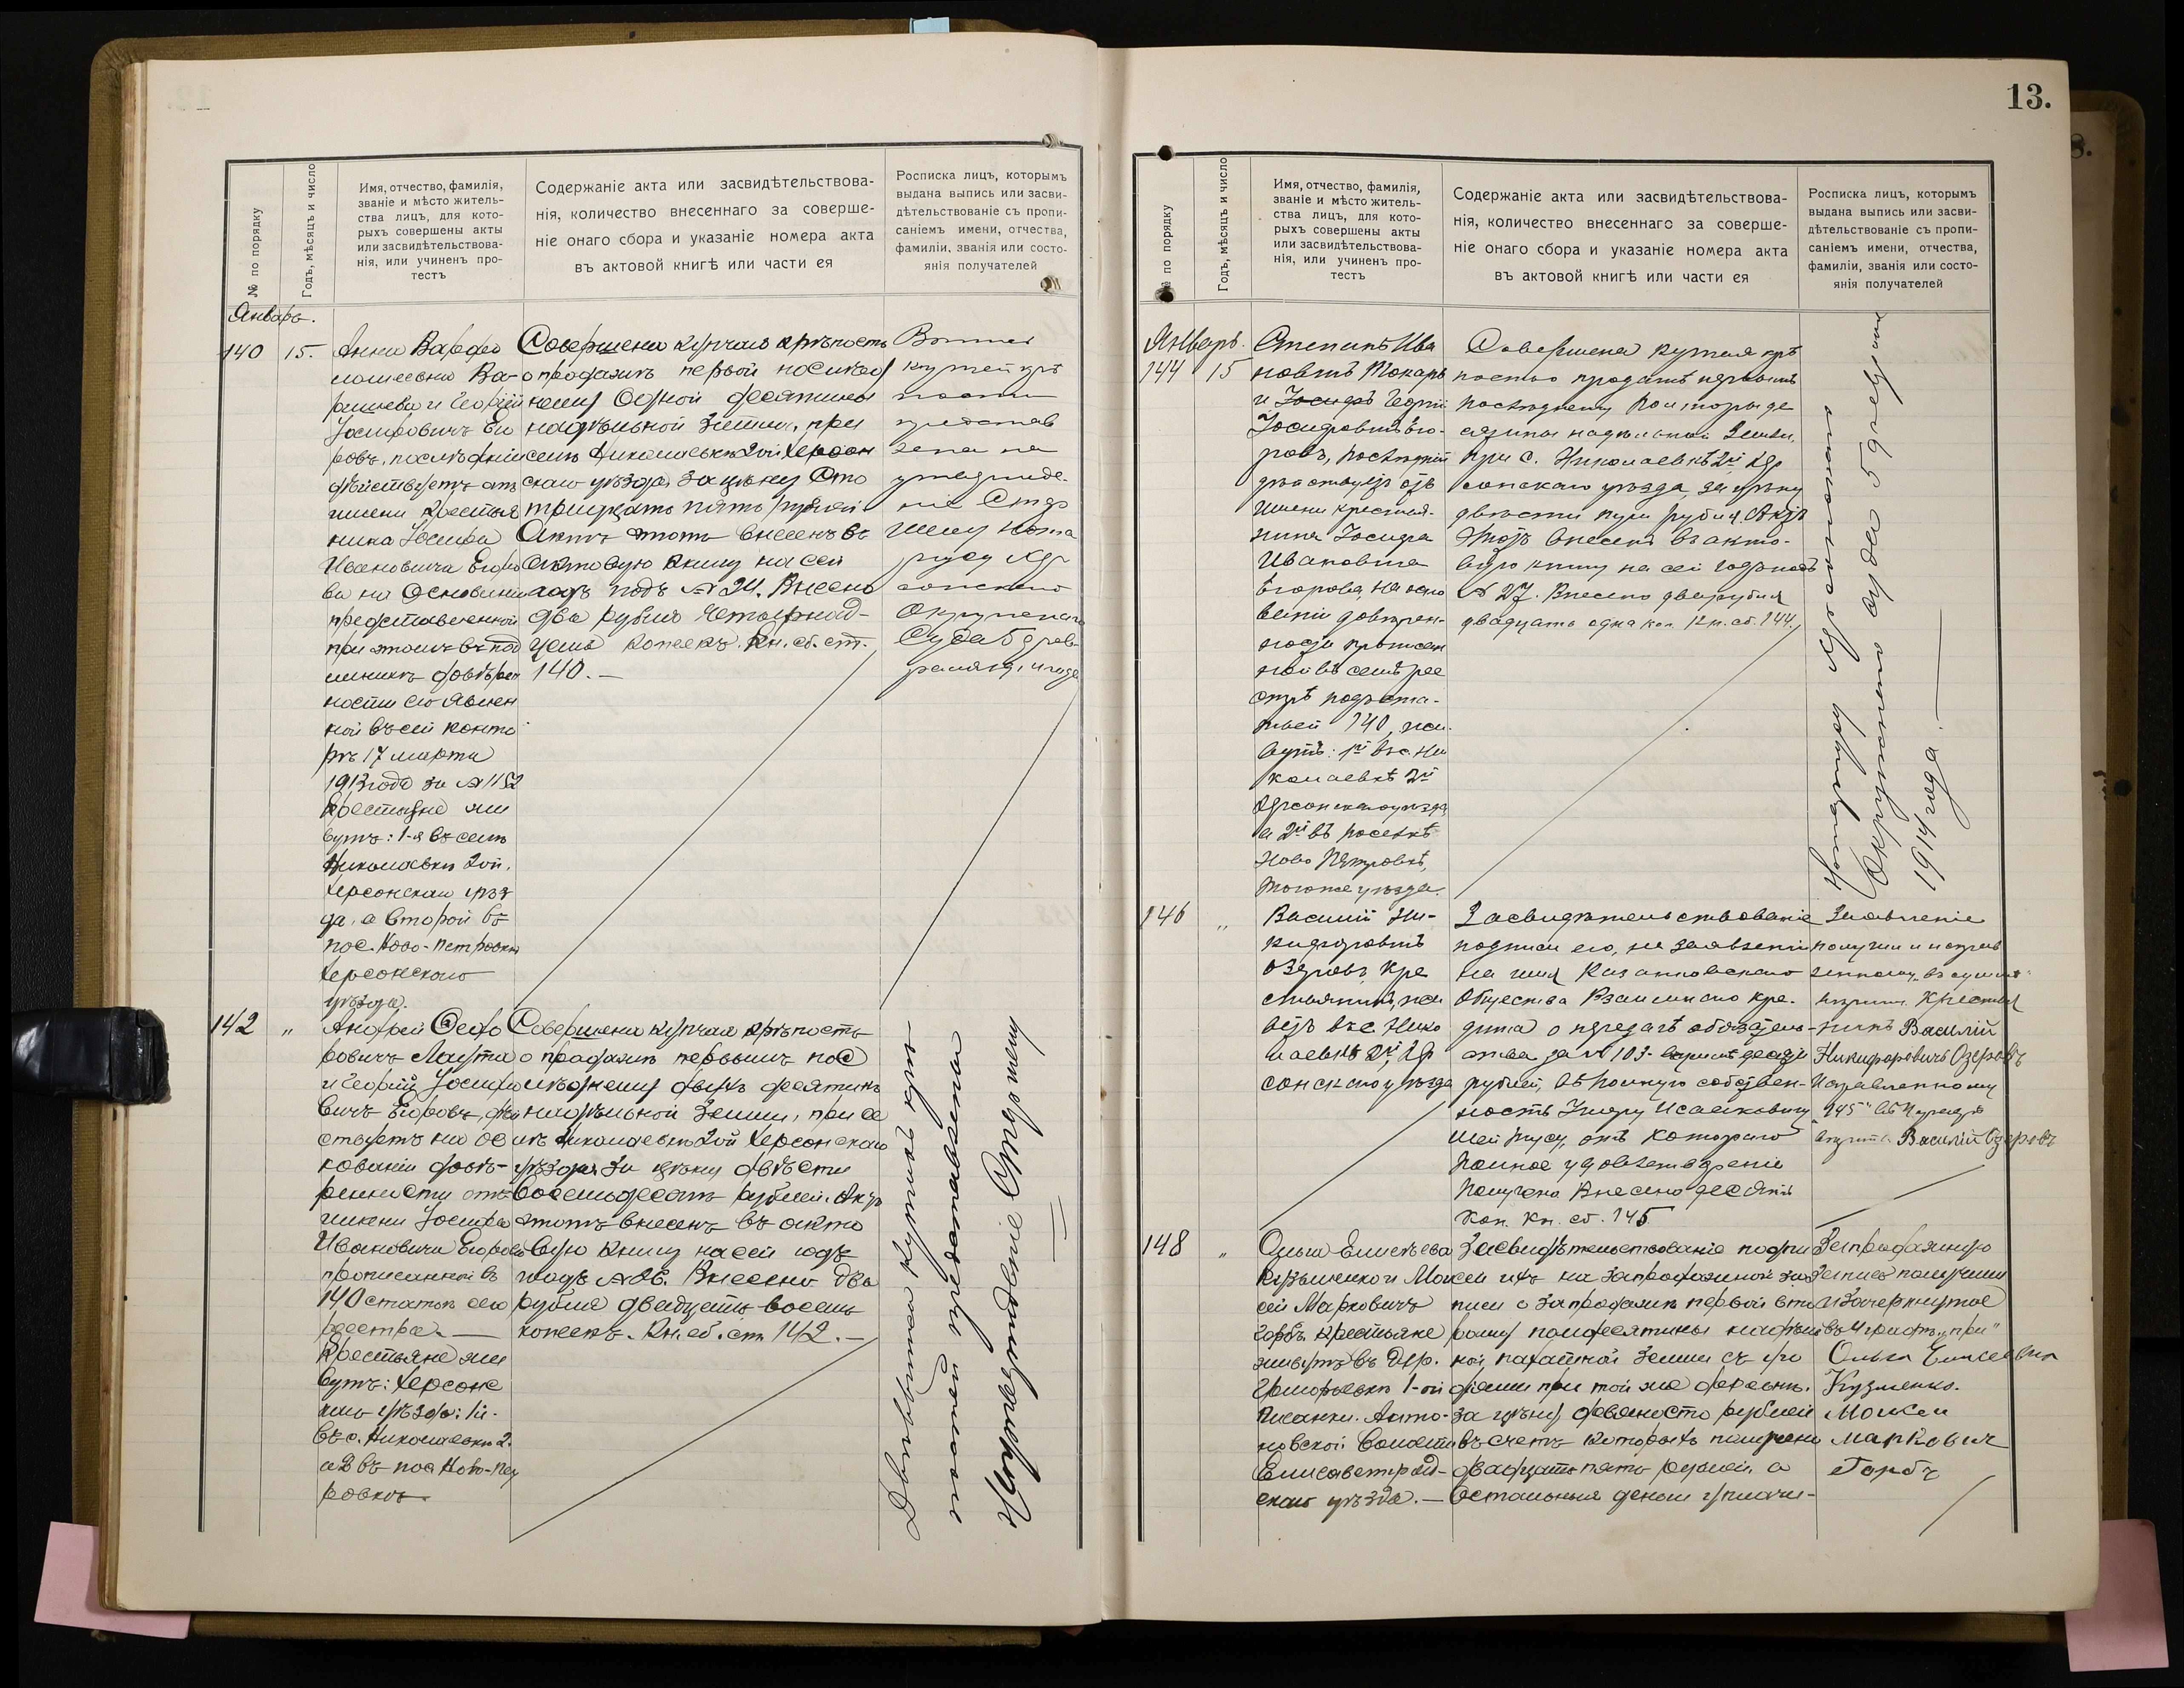 13.
№ по порядку
Годъ, мѣсяцъ и число
Имя, отчество, фамилія,
званіе и мѣсто житель-
ства лицъ, для кото-
рыхъ совершены акты
или засвидѣтельствова-
нія, или учиненъ про-
тестъ
Содержаніе акта или засвидѣтельствова-
нія, количество внесеннаго за соверше-
ніе онаго сбора и указаніе номера акта
въ актовой книгѣ или части ея
Росписка лицъ, которымъ
выдана выпись или засви-
дѣтельствованіе съ пропи-
саніемъ имени, отчества,
фамиліи, званія или состо-
янія получателей
Январь.
140
15.
Анна Варфо
ломеевна Ва-
и Георгій
Іосифовичъ Его
ровъ, послѣдній
дѣйствуетъ отъ
имени крестья
нина Іосифа
Ивановича Егоро
ва на основаніи
представленной
при этомъ въ под
линникѣ довѣрен
ности его явлен
ной въ сей конто
рѣ 17 марта
1913 года за № 1152
Крестьяне жи
вутъ: 1-я въ селѣ
Николаевкѣ 2ой,
Херсонскаго уѣз
да, а второй въ
пос. Ново-Петровкѣ
Херсонскаго
уѣзда.
Совершена купчая крѣпость
о продажѣ первой послѣд
нему одной десятины
надѣльной земли, при
селѣ Николаевкѣ 2ой Херсон
скаго уѣзда, за цѣну сто
тридцать пять рублей
Актъ этотъ внесенъ въ
актовую книгу на сей
годъ подъ № 24. Внесено
два рубля четырнад-
цать копеекъ. Кн. сб. ст.
140.—
купчей крѣ
пости
представ
лена на
утвержде-
ніе Стар
шему Нота
ріусу Хер
сонскаго
Окружнаго
Суда 5 фев
раля 1914 года
142
"
Андрей Федо
ровичъ Лаута
и Георгій Іосифо
вичъ Егоровъ, дѣй
ствуетъ на ос
нованіи довѣ-
ренности отъ
имени Іосифа
Ивановича Егорова
прописанной въ
140 статьѣ сего
реестра.—
Крестьяне жи
вутъ: Херсонс
каго уѣзда: 1й-
въ с. Николаевкѣ 2.
а 2 въ пос Ново-Пет
ровкѣ.
Совершена купчая крѣпость
о продажѣ первымъ пос
лѣднему двухъ десятинъ
надѣльной земли, при се
лѣ Николаевкѣ 2ой Херсонскаго
уѣзда за цѣну двѣсти
восемьдесятъ рублей. Актъ
этотъ внесенъ въ акто
вую книгу на сей годъ
подъ № 26. Внесено два
рубля двадцать восемь
копеекъ. Кн. сб. ст. 142.—
купчихъ крѣ-
представлена
Утвержденіе Старшему
№ по порядку
Годъ, мѣсяцъ и число
Имя, отчество, фамилія,
званіе и мѣсто житель-
ства лицъ, для кото-
рыхъ совершены акты
или засвидѣтельствова-
нія, или учиненъ про-
тестъ
Содержаніе акта или засвидѣтельствова-
нія, количество внесеннаго за соверше-
ніе онаго сбора и указаніе номера акта
въ актовой книгѣ или части ея
Росписка лицъ, которымъ
выдана выпись или засви-
дѣтельствованіе съ пропи-
саніемъ имени, отчества,
фамиліи, званія или состо-
янія получателей
Январь.
144
15
Степанъ Ива
новичъ Токарь
и Іосифъ Георгій
Іосифовичъ Его-
ровъ, послѣдній
дѣйствуетъ отъ
имени крестья-
нина Іосифа
Ивановича
Егорова, на осно
ваніи довѣрен-
ности прописан
ной въ семъ рее
стрѣ подъ ста-
тьей 140, жи-
вутъ: 1й въ с. Ни
колаевкѣ 2й
Херсонскаго уѣзда,
а 2й въ поселкѣ
Ново Петровкѣ,
того же уѣзда.
Совершена купчая крѣ
постью продажѣ первымъ
послѣднему полторы де
сятины надѣльной земли,
при с. Николаевкѣ 2й Хер
сонскаго уѣзда, за цѣну
двѣсти пять рублей. Актъ
этотъ внесенъ въ акто-
вую книгу на сей годъ подъ
№ 27. Внесено два рубля
двадцать одна коп. Кн. сб. 144.
Нотаріусу Херсонскаго
Окружнаго суда 5 февраля
1914 года.—
146
"
Василій Ни-
кифоровичъ
Озеровъ, кре
стьянинъ, жи
ветъ въ с. Нико
лаевкѣ 2й, Хер
сонскаго уѣзда
Засвидѣтельствованіе
подписи его, на заявленіи
на имя Казанковскаго
Общества Взаимнаго кре-
дита о передачѣ обязатель-
ства за № 103-
рублей, въ полную собствен-
ность Исааковичу
отъ котораго
полное удовлетвореніе
получено. Внесено десять
коп. Кн. сб. 145
Заявленіе
получилъ и исправ
Крестья
нинъ Василій
Никифоровичъ Озеровъ
Исправленному
"145"
Василій Озеровъ
148
"
Ольга Елисѣева
Кузьменко и Мои
сей Марковичъ
Горбъ крестьяне
живутъ въ дер.
Григорьевкѣ 1-ой
Писанки. Анто-
новской волости
Елисаветград-
скаго уѣзда.—
Засвидѣтельствованіе подпи
си ихъ на запродажной за
писи о запродажѣ первой вто
рому полдесятины надѣль
ной, пахатной земли съ
при той же деревнѣ,
за цѣну девяносто рублей
въ счетъ которыхъ получено
двадцать пять рублей, а
остальныя деньги уплачи-
Запродажную
запись получили
и зачеркнутое
въ 4 графѣ "при"
Ольга Елисеевна
Кузменко.
Моисей
Марковичъ
Горбъ